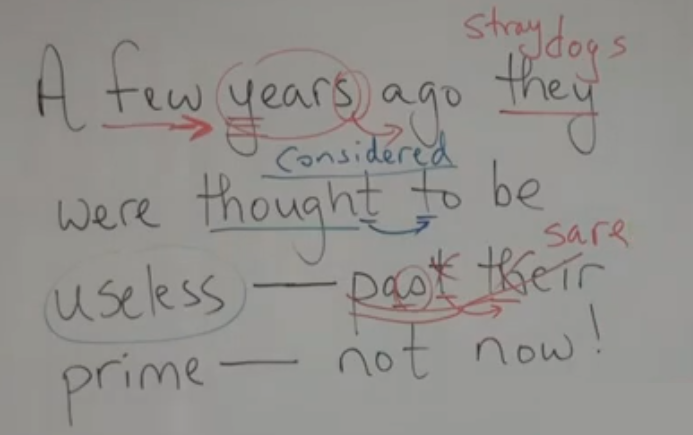 stray dogs
A few years ago they
considered
were thought to be
sare
useless — past their
prime — not now!